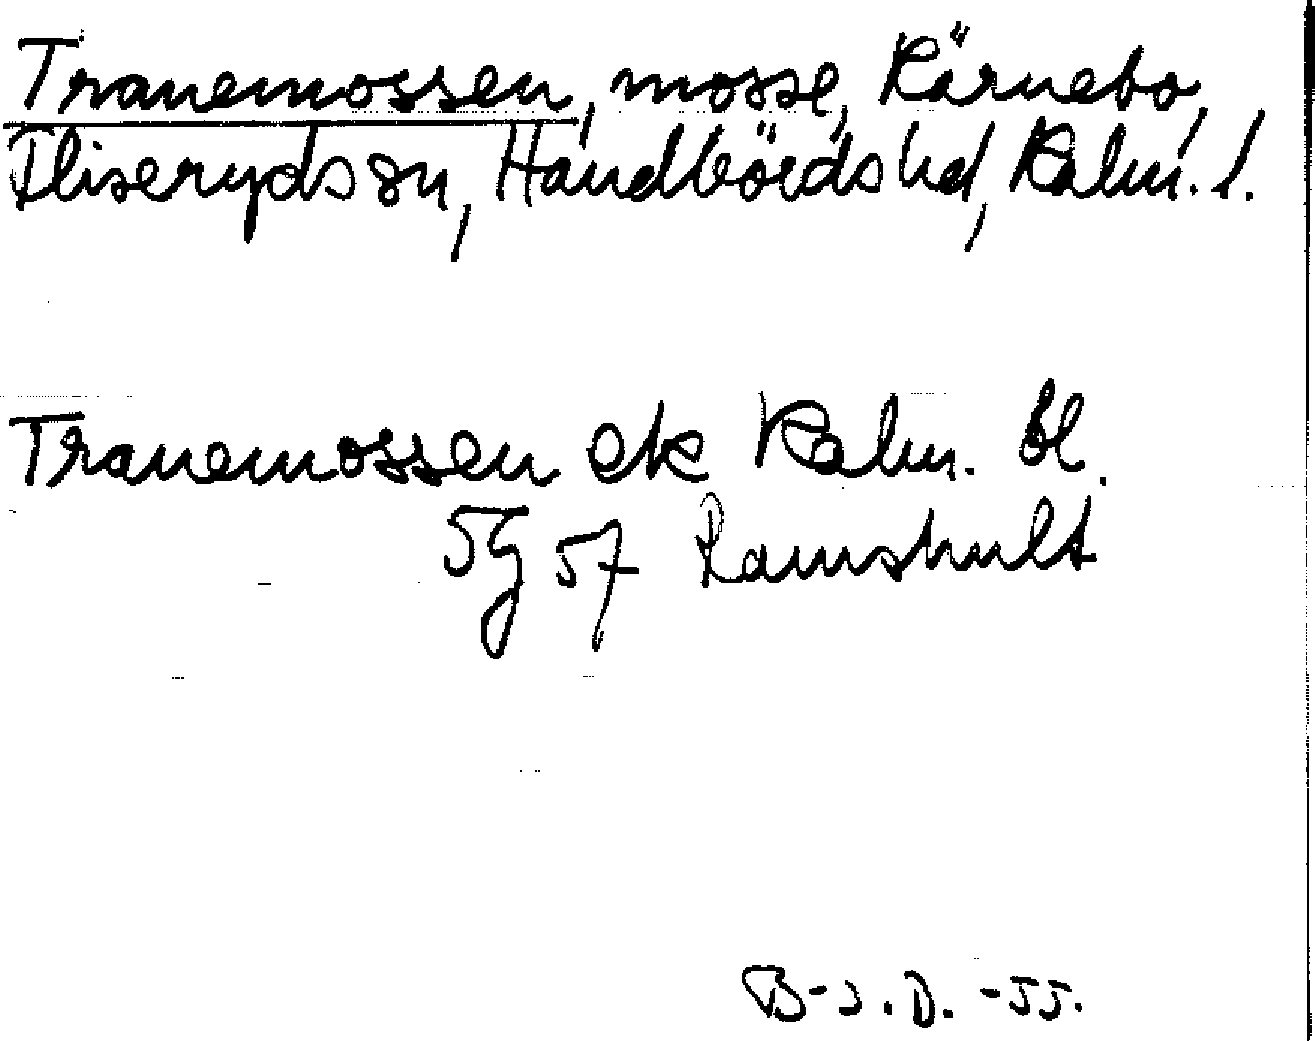 Tranemossen, mosse, Kärnebo,
Fliseryds sn, Handbörds hd, Kalm. l.
Tranemossen ek Kalm. bl.
5G 5f Ramshult
B-J.D. -55.